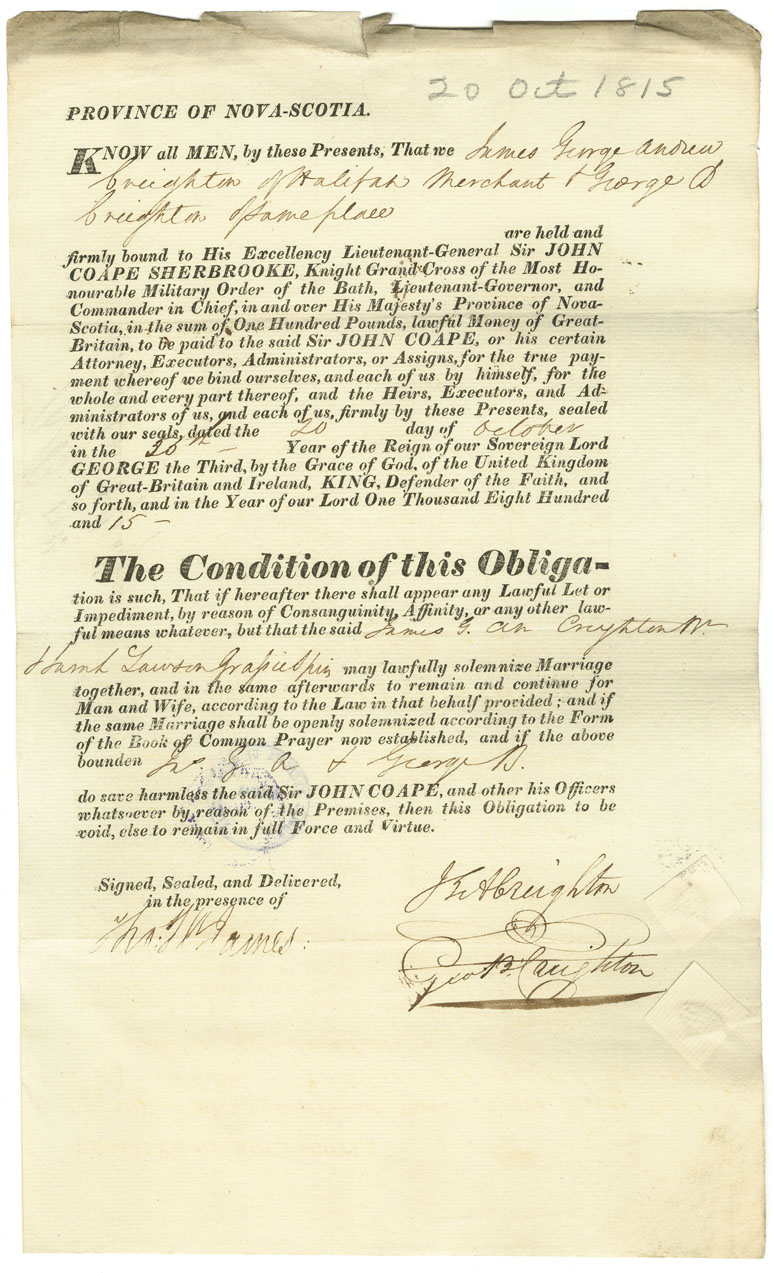 20 Oct 1815
PROVINCE OF NOVA-SCOTIA.
KNOW all MEN, by these Presents, That we James George Andrew
Creighton of Halifax Merchant & George B
Creighton of same place
are held and
firmly bound to His Excellency Lieutenant-General Sir JOHN
COAPE SHERBROOKE, Knight Grand Cross of the Most Ho-
nourable Military Order of the Bath, Lieutenant-Governor, and
Commander in Chief, in and over His Majesty's Province of Nova-
Scotia, in the sum of One Hundred Pounds, lawful Money of Great-
Britain, to be paid to the said Sir JOHN COAPE, or his certain
Attorney, Executors, Administrators, or Assigns, for the true pay-
ment whereof we bind ourselves, and each of us by himself, for the
whole and every part thereof, and the Heirs, Executors, and Ad-
ministrators of us, and each of us, firmly by these Presents, sealed
with our seals, dated the 20 day of October
in the Year of the Reign of our Sovereign Lord
GEORGE the Third, by the Grace of God, of the United Kingdom
of Great-Britain and Ireland, KING, Defender of the Faith, and
so forth, and in the Year of our Lord One Thousand Eight Hundred
and 15 -
The Condition of this Obliga-
tion is such, That if hereafter there shall appear any Lawful Let or
Impediment, by reason of Consanguinity, Affinity, or any other law-
ful means whatever, but that the said James G. An Creighton
& Sarah Lawson Grassie Spin may lawfully solemnize Marriage
together, and in the same afterwards to remain and continue for
Man and Wife, according to the Law in that behalf provided; and if
the same Marriage shall be openly solemnized according to the Form
of the Book of Common Prayer now established, and if the above
bounden Js G A & George B.
do save harmless the said Sir JOHN COAPE, and other his Officers
whatsoever by reason of the Premises, then this Obligation to be
void, else to remain in full Force and Virtue.
Signed, Sealed, and Delivered,
in the presence of
JGACreighton
Thos. James.
Geo B. Creighton